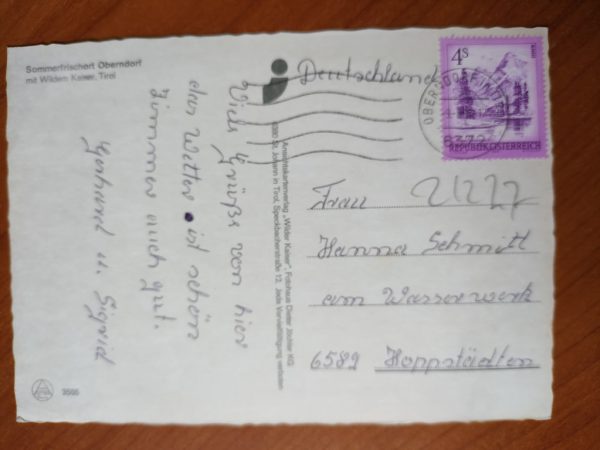 Sommerfrischort Oberndorf
mit Wildem Kaiser, Tirol
Deutschland
4 S
REPUBLIK ÖSTERREICH
Viele Grüße von hier
das Wetter ist schön
Zimmer auch gut.
Gerhard u. Sigrid
Ansichtskartenverlag „Wilder Kaiser", Fotohaus Dieter Jöchler KG
6380 St. Johann in Tirol, Speckbacherstraße 12. Jede Vervielfältigung verboten
Frau
Hanna Schmitt
am Wasserwerk
6589 Hoppstädten
3505